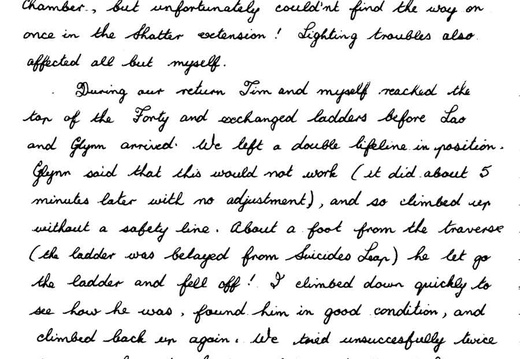 chamber, but unfortunately could'nt find the way on
once in the Shatter extension! Lighting troubles also
affected all but myself.
During our return Tim and myself reached the
top of the Forty and exchanged ladders before Lao
and Glynn arrived. We left a double lifeline in position.
Glynn said that this would not work (it did about 5
minutes later with no adjustment), and so climbed up
without a safety line. About a foot from the traverse
(the ladder was belayed from Suicides Leap) he let go
the ladder and fell off! I climbed down quickly to
see how he was, found him in good condition, and
climbed back up again. We tried unsuccesfully twice